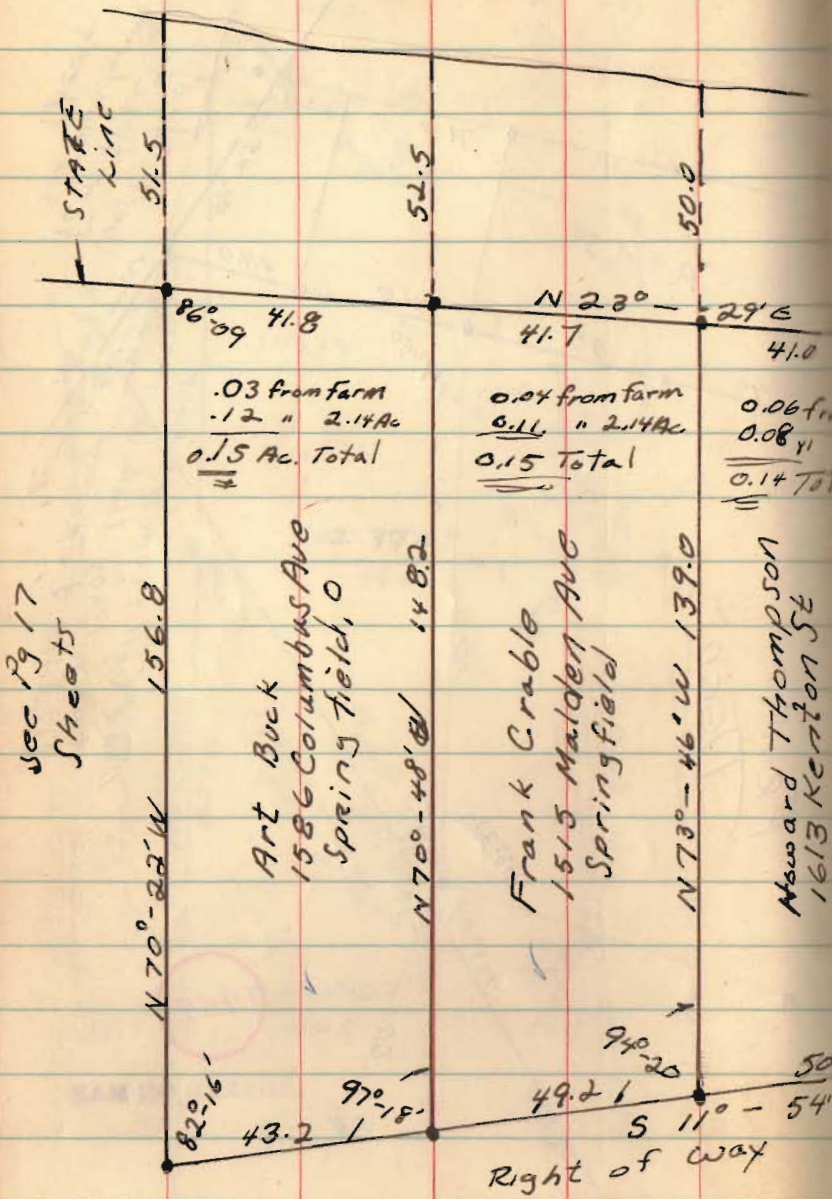 STATE
Line
51.5
52.5
50.0
86°-09
41.8
N 23°-29' E
41.7
41.0
.03 from farm
.12 " 2.14Ac
0.15 Ac. Total
0.04 from farm
0.11 " 2.14Ac.
0.15 Total
0.06
0.08 "
0.14
see Pg 17
Sheets
N 70°-22' W 156.8
Art Buck
1586 Columbus Ave
Springfield, O
N 70°-48' W 148.2
Frank Crable
1515 Malden Ave
Springfield
N 73°-46' W 139.0
Howard Thompson
1613 Kenton St
82°-16'
43.2
97°-18'
49.2
94°-20
S 11°-54'
50
Right of way